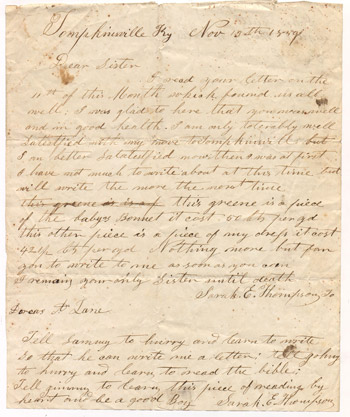 Tompkinsville Ky Nov 13th 1859
Dear Sister
I read your letter on the
11th of this Month which found us all
well. I was glad to here that you was well
and in good health. I am only tolerably well
Satcesfied with my move to Tompkinsvill but
I am better Satcesfied now then I was at first
I have not much to write about at this time but
will write the more the next time
this greene is a p this greene is a piece
of the babys Bonnet it cost 50 cts per yd
this other piece is a piece of my dress it cost
42½ cts per yd Nothing more but for
you to write to me as soon as you can
I remain your only Sister until death
Sarah E. Thompson to
Dorcas A Lane
Tell Sammy to hurry and learn to write
So that he can write me a letter; going
to hurry and learn to read the bible.
Tell Jimmy to learn this piece of reading by
heart and be a good Boy Sarah E Thompson